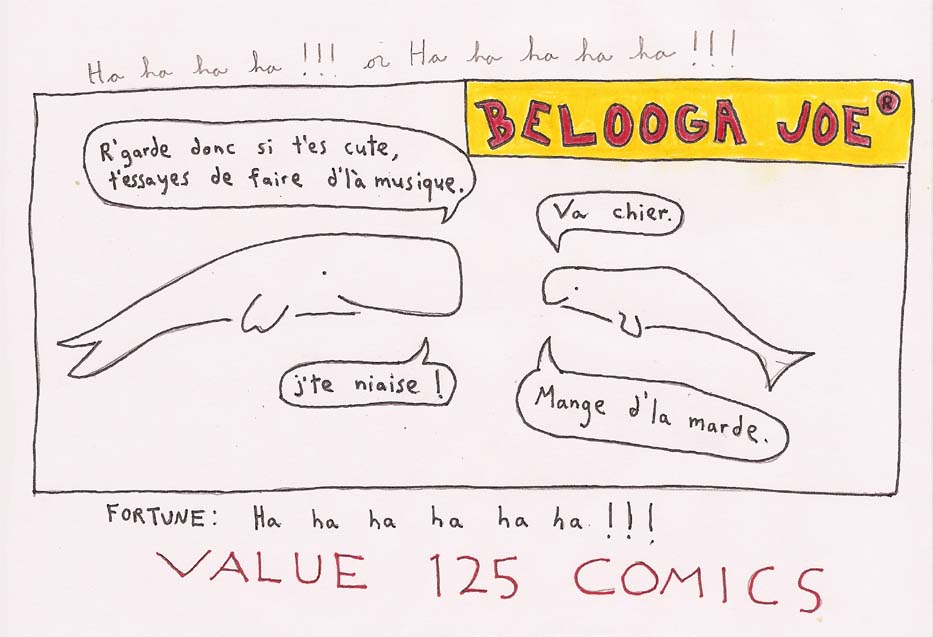 Ha ha ha ha !!! or Ha ha ha ha ha !!!
BELOOGA JOE®
R'garde donc si t'es cute,
t'essayes de faire d'là musique.
Va chier.
j'te niaise !
Mange d'la marde.
FORTUNE: Ha ha ha ha ha ha !!!
VALUE 125 COMICS